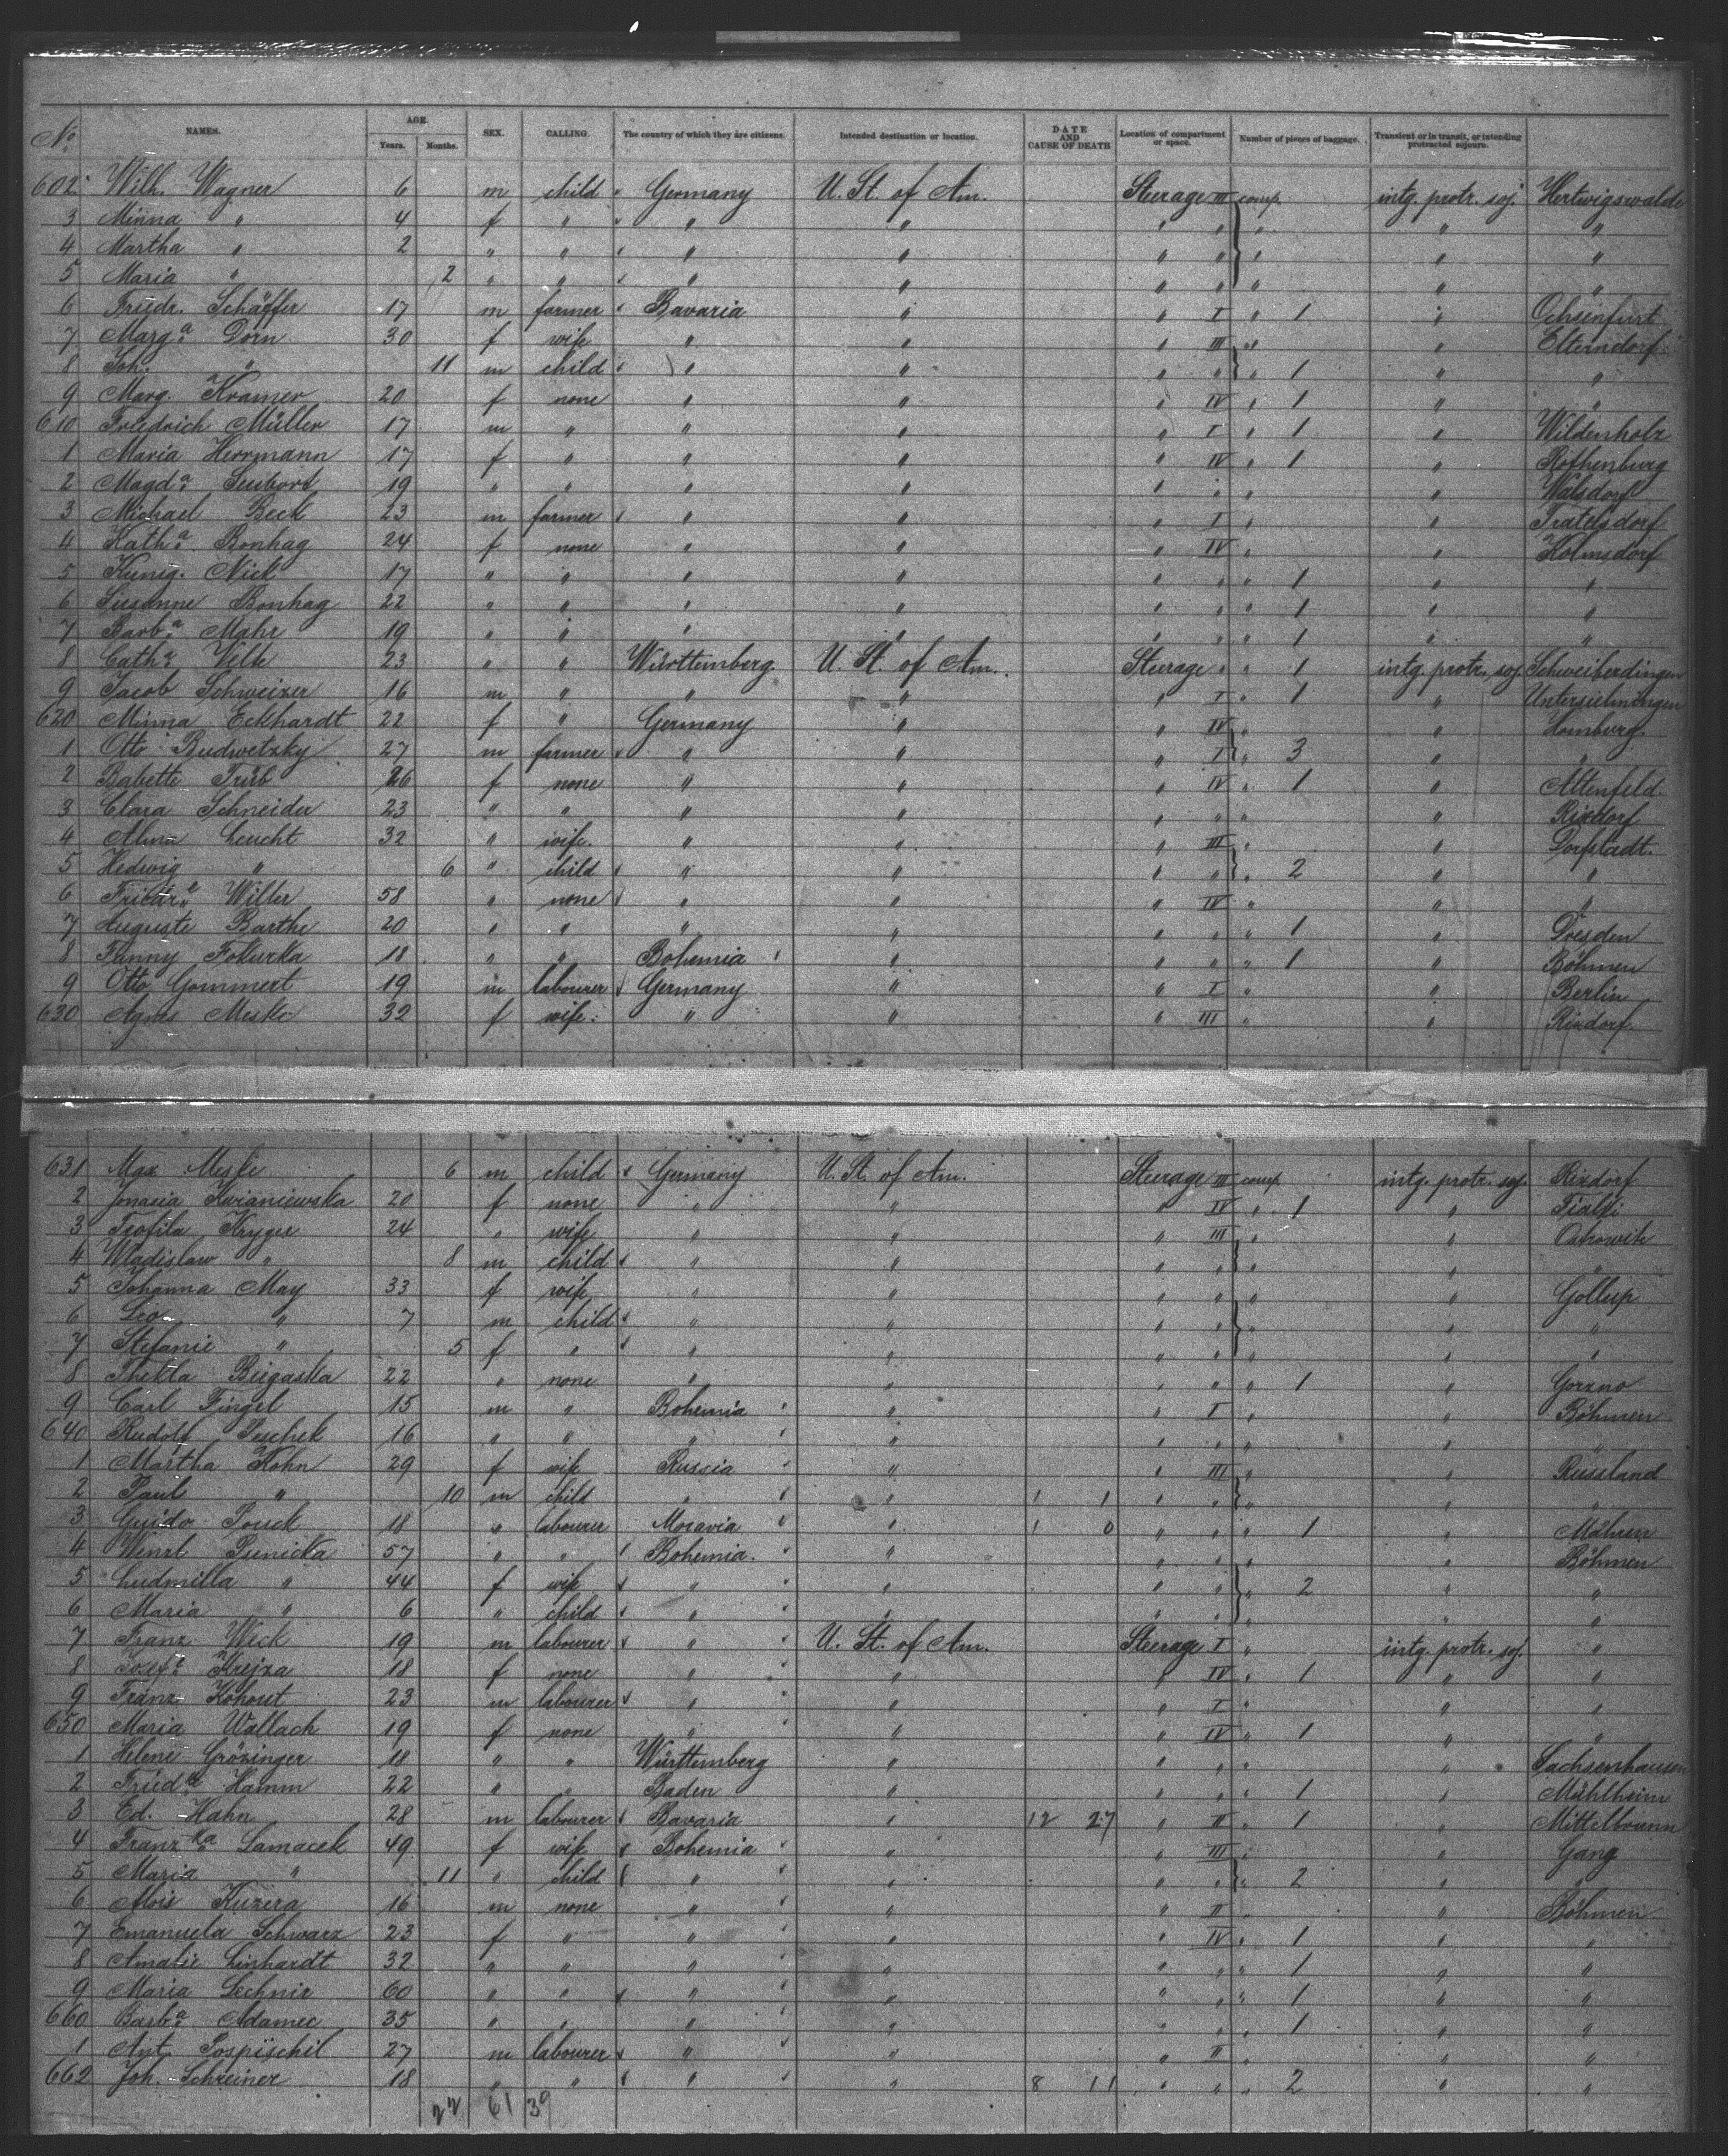 No. NAMES. AGE. Years. Months. SEX. CALLING. The country of which they are citizens. Intended destination or location. DATE AND CAUSE OF DEATH Location of compartment or space. Number of pieces of baggage. Transient or in transit, or intending protracted sojourn.
602 Wilh. Wagner 6 m child Germany U. St. of Am. Steerage III comp. intg. protr. soj. Hertwigswalde
3 Minna " 4 f " " " " " " " "
4 Martha " 2 " " " " " " " " "
5 Maria " 2 " " " " " " " " "
6 Friedr. Schäffer 17 m farmer Bavaria " " I " 1 " Ochsenfurt
7 Marga Dorn 30 f wife " " " III " " Elterndorf
8 Joh. " 11 m child " " " " " 1 " "
9 Marg. Kramer 20 f none " " " IV " 1 " "
610 Friedrich Müller 17 m " " " " I " 1 " Wildenholz
1 Maria Herrmann 17 f " " " " IV " 1 " Rothenburg
2 Magda 19 " " " " " " " " Walsdorf
3 Michael Beck 23 m farmer " " " I " " Tratelsdorf
4 Katha Bonhag 24 f none " " " IV " " Kolmsdorf
5 Kunig. Nick 17 " " " " " " " 1 " "
6 Susanne Bonhag 22 " " " " " " " 1 " "
7 Barba Mahr 19 " " " " " " " 1 " "
8 Catha Velte 23 " " Württemberg U. St. of Am. Steerage " " 1 intg. protr. soj. Schweiberdingen
9 Jacob Schweizer 16 m " " " " I " 1 " Untersielmingen
620 Minna Eckhardt 22 f " Germany " " IV " " Homburg
1 Otto Budwetzky 27 m farmer " " " I " 3 " "
2 Babette Trüb 26 f none " " " IV " 1 " Altenfeld
3 Clara Schneider 23 " " " " " " " " Rixdorf
4 Alma Leucht 32 " wife " " " III " Dorfstadt.
5 Hedwig " 6 " child " " " " " 2 " "
6 Willer 58 " none " " " IV " " "
7 Auguste Barthe 20 " " " " " " " 1 " Dresden
8 Fanny Fokurka 18 " " Bohemia " " " " 1 " Böhmen
9 Otto Gommert 19 m labourer Germany " " I " " Berlin
630 Agnes Meske 32 f wife " " " III " " Rixdorf
631 Max Meske 6 m child Germany U. St. of Am. Steerage III comp. intg. protr. soj. Rixdorf
2 Kwianiewska 20 f none " " " IV " 1 "
3 Teofila Kryger 24 " wife " " " III " "
4 Wladislaw " 8 m child " " " " " " "
5 Johanna May 33 f wife " " " " " " Gollup
6 Leo " 7 m child " " " " " " "
7 Stefanie " 5 f " " " " " " " "
8 Thekla Biegaska 22 " none " " " " " 1 " Gorzno
9 Carl Fingel 15 m " Bohemia " " I " " Böhmen
640 Rudolf Peschek 16 " " " " " " " " "
1 Martha Kohn 29 f wife Russia " " III " " Russland
2 Paul " 10 m child " " 1 1 " " " " "
3 Guido 18 " labourer Moravia " 1 0 " " " 1 " Mähren
4 Wenzl 57 " " Bohemia " " " " " Böhmen
5 Ludmilla " 44 f wife " " " " " 2 " "
6 Maria " 6 " child " " " " " " "
7 Franz Weck 19 m labourer " U. St. of Am. Steerage I " intg. protr. soj. "
8 Josefa Krejza 18 f none " " " IV " 1 " "
9 Franz Kohout 23 m labourer " " " I " " "
650 Maria Wallach 19 f none " " " IV " 1 " "
1 Helene Grözinger 18 " " Württemberg " " " " " Sachsenhausen
2 Hamm 22 " " Baden " " " " 1 " Mühlheim
3 Ed. Hahn 28 m labourer Bavaria " 12 27 " II " 1 " Mittelbrunn
4 Franzka Samacek 49 f wife Bohemia " " III " " Gang
5 Maria " 11 " child " " " " " 2 " "
6 Alois Kuzera 16 m none " " " II " " Böhmen
7 Emanuela Schwarz 23 f " " " " IV " 1 " "
8 Amalie Linhardt 32 " " " " " " " 1 " "
9 Maria Lechnir 60 " " " " " " " 1 " "
660 Barba Adamec 35 " " " " " " " 1 " "
1 Ant. Pospischil 27 m labourer " " " II " " "
662 Joh. Schreiner 18 " " " " 8 11 " " " 2 " "
22 61 39